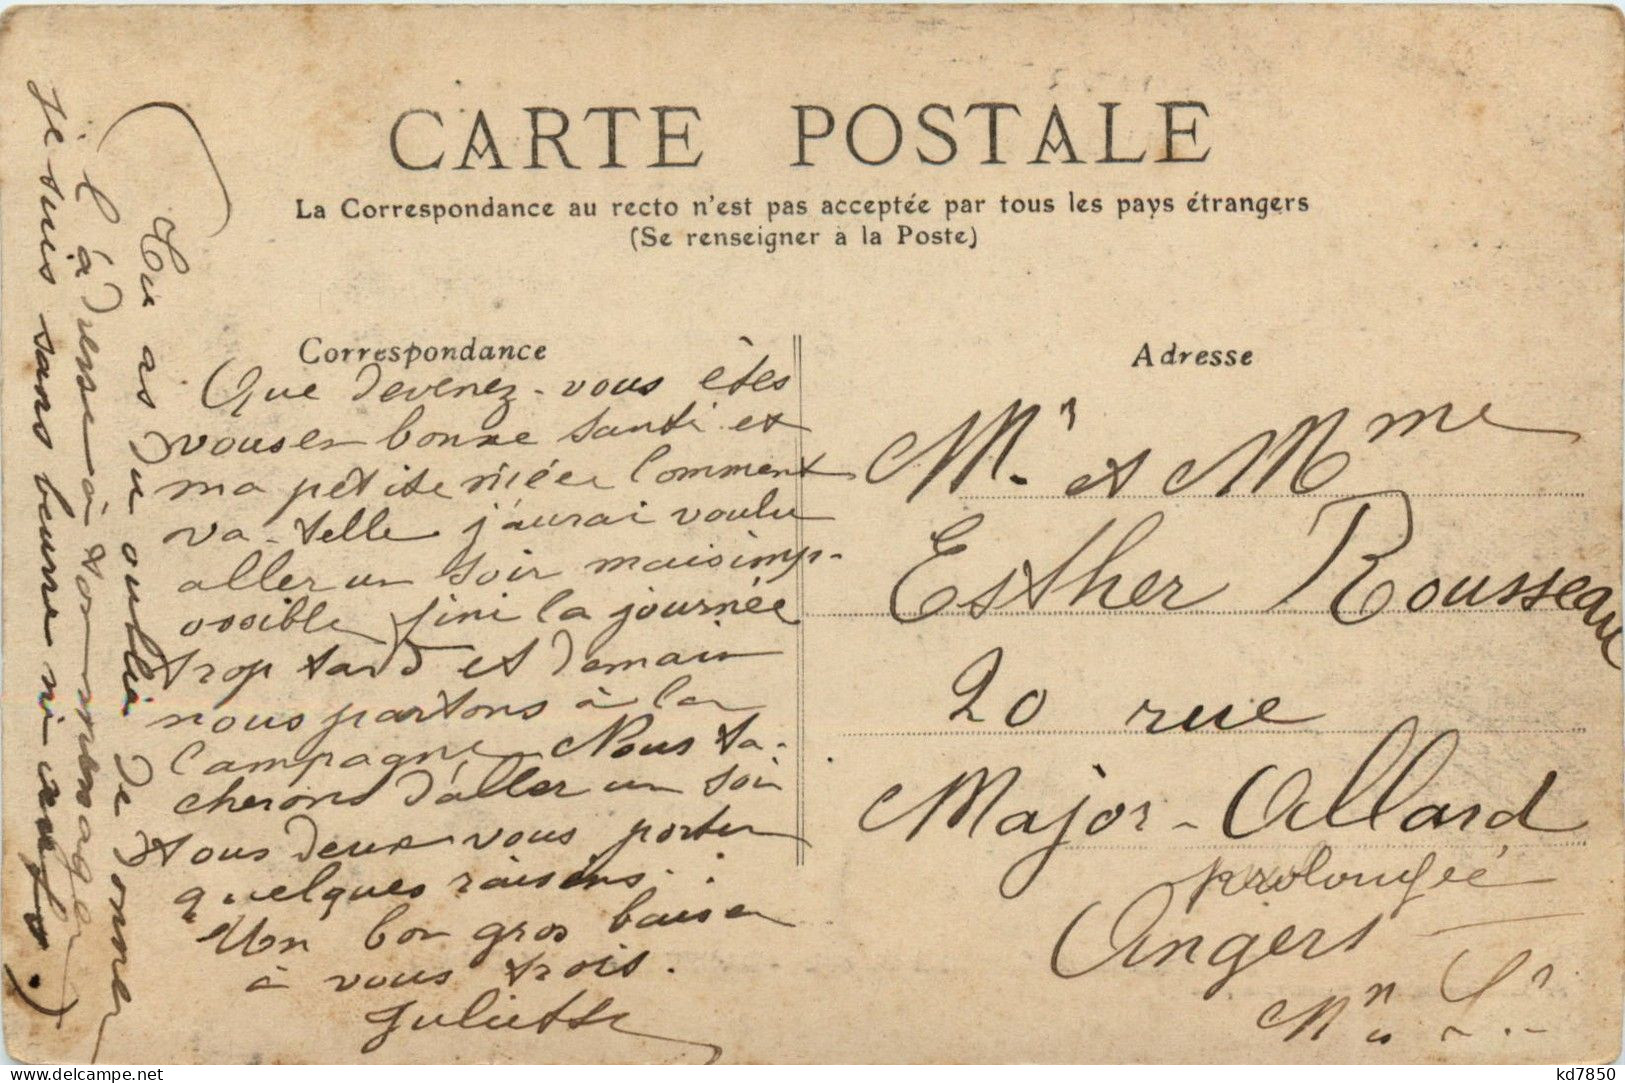 CARTE POSTALE
La Correspondance au recto n'est pas acceptée par tous les pays étrangers
(Se renseigner à la Poste)
Correspondance
Que devenez-vous êtes
vous en bonne santé et
ma petite nièce Comment
va-telle j'aurai voulu
aller un soir mais imp-
ossible fini la journée
trop tard et demain
nous partons à la
Campagne. Nous ta-
cherons d'aller un soir
tous deux vous porter
quelques raisins..
Mon bon gros baiser
à vous trois.
Juliette
(Tu as du oublié de donner
l'adresse à ton ménager
je suis sans beurre ni œufs.)
Adresse
Mr. et Mme
Esther Rousseau
20 rue
Major-Allard
prolongée
Angers
Mn Lr
kd7850